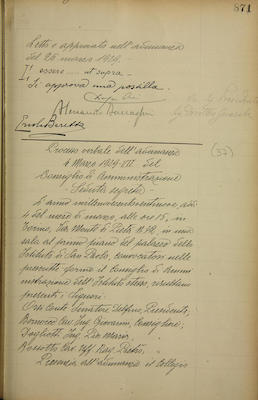 871
Letto e approvato nell'adunanza
del 25 marzo 1929.
I, essere ... ut supra -
Si approva una postilla.
(37)
Processo verbale dell'adunanza
4 Marzo 1929-VII del
Consiglio di Amministrazione
- Seduta segreta -
L'anno millenovecentoventinove, addì
4 del mese di marzo, alle ore 15, in
Torino, Via Monte di Pietà N. 32, in una
sala al primo piano del palazzo dello
Istituto di San Paolo, convocatosi nelle
prescritte forme il Consiglio di Ammi
nistrazione dell'Istituto stesso, risultano
presenti i Signori:
On. Conte Senatore Delfino, Presidente;
Cav. Ing. Giovanni, Consigliere;
Ing. Mario, "
Rossotto Cav. Uff. Rag. Pietro, "
Presenzia all'adunanza il Collegio